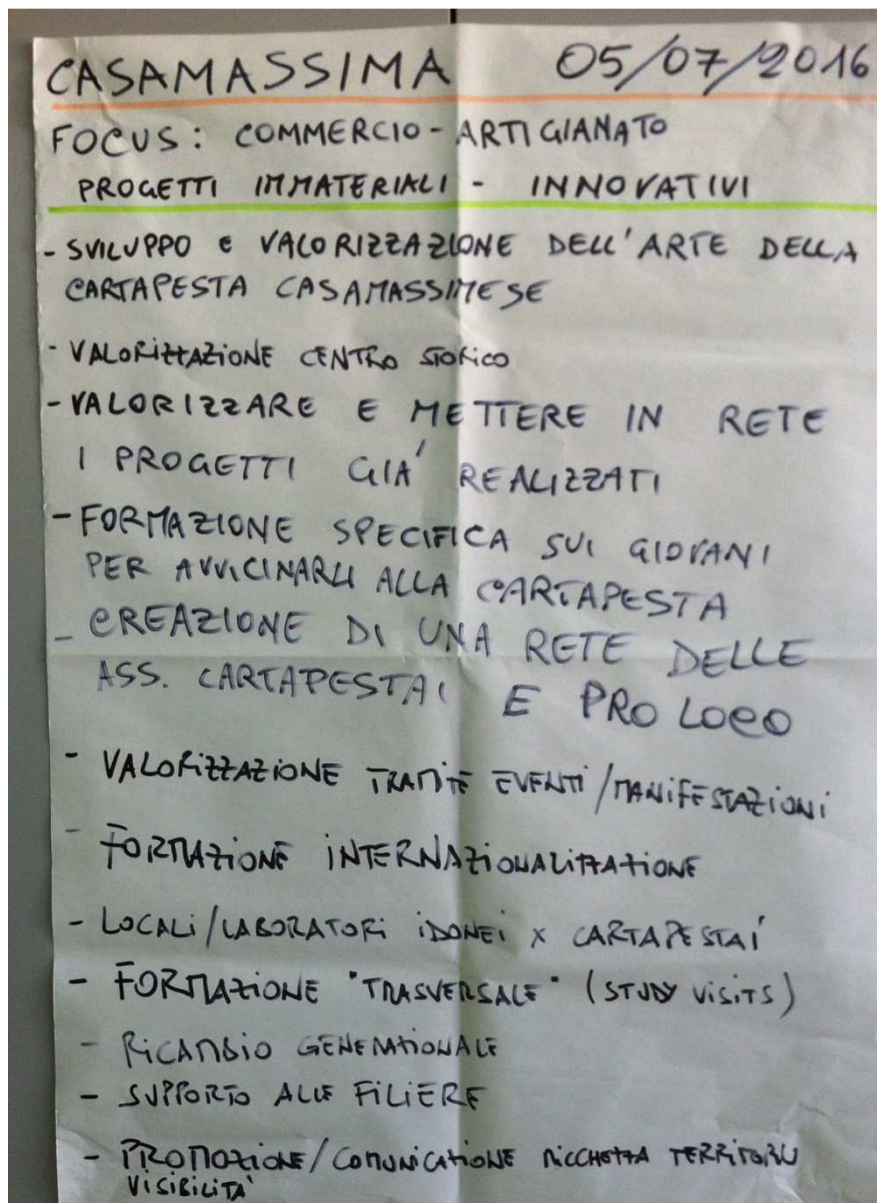 CASAMASSIMA 05/07/2016
FOCUS: COMMERCIO - ARTIGIANATO
PROGETTI IMMATERIALI - INNOVATIVI
- SVILUPPO E VALORIZZAZIONE DELL'ARTE DELLA
CARTAPESTA CASAMASSIMESE
- VALORIZZAZIONE CENTRO STORICO
- VALORIZZARE E METTERE IN RETE
I PROGETTI GIA' REALIZZATI
- FORMAZIONE SPECIFICA SUI GIOVANI
PER AVVICINARLI ALLA CARTAPESTA
- CREAZIONE DI UNA RETE DELLE
ASS. CARTAPESTAI E PRO LOCO
- VALORIZZAZIONE TRAMITE EVENTI/MANIFESTAZIONI
- FORMAZIONE INTERNAZIONALIZZAZIONE
- LOCALI/LABORATORI IDONEI X CARTAPESTAI
- FORMAZIONE "TRASVERSALE" (STUDY VISITS)
- RICAMBIO GENERAZIONALE
- SUPPORTO ALLE FILIERE
- PROMOZIONE/COMUNICAZIONE RICCHEZZA TERRITORIO
VISIBILITÀ